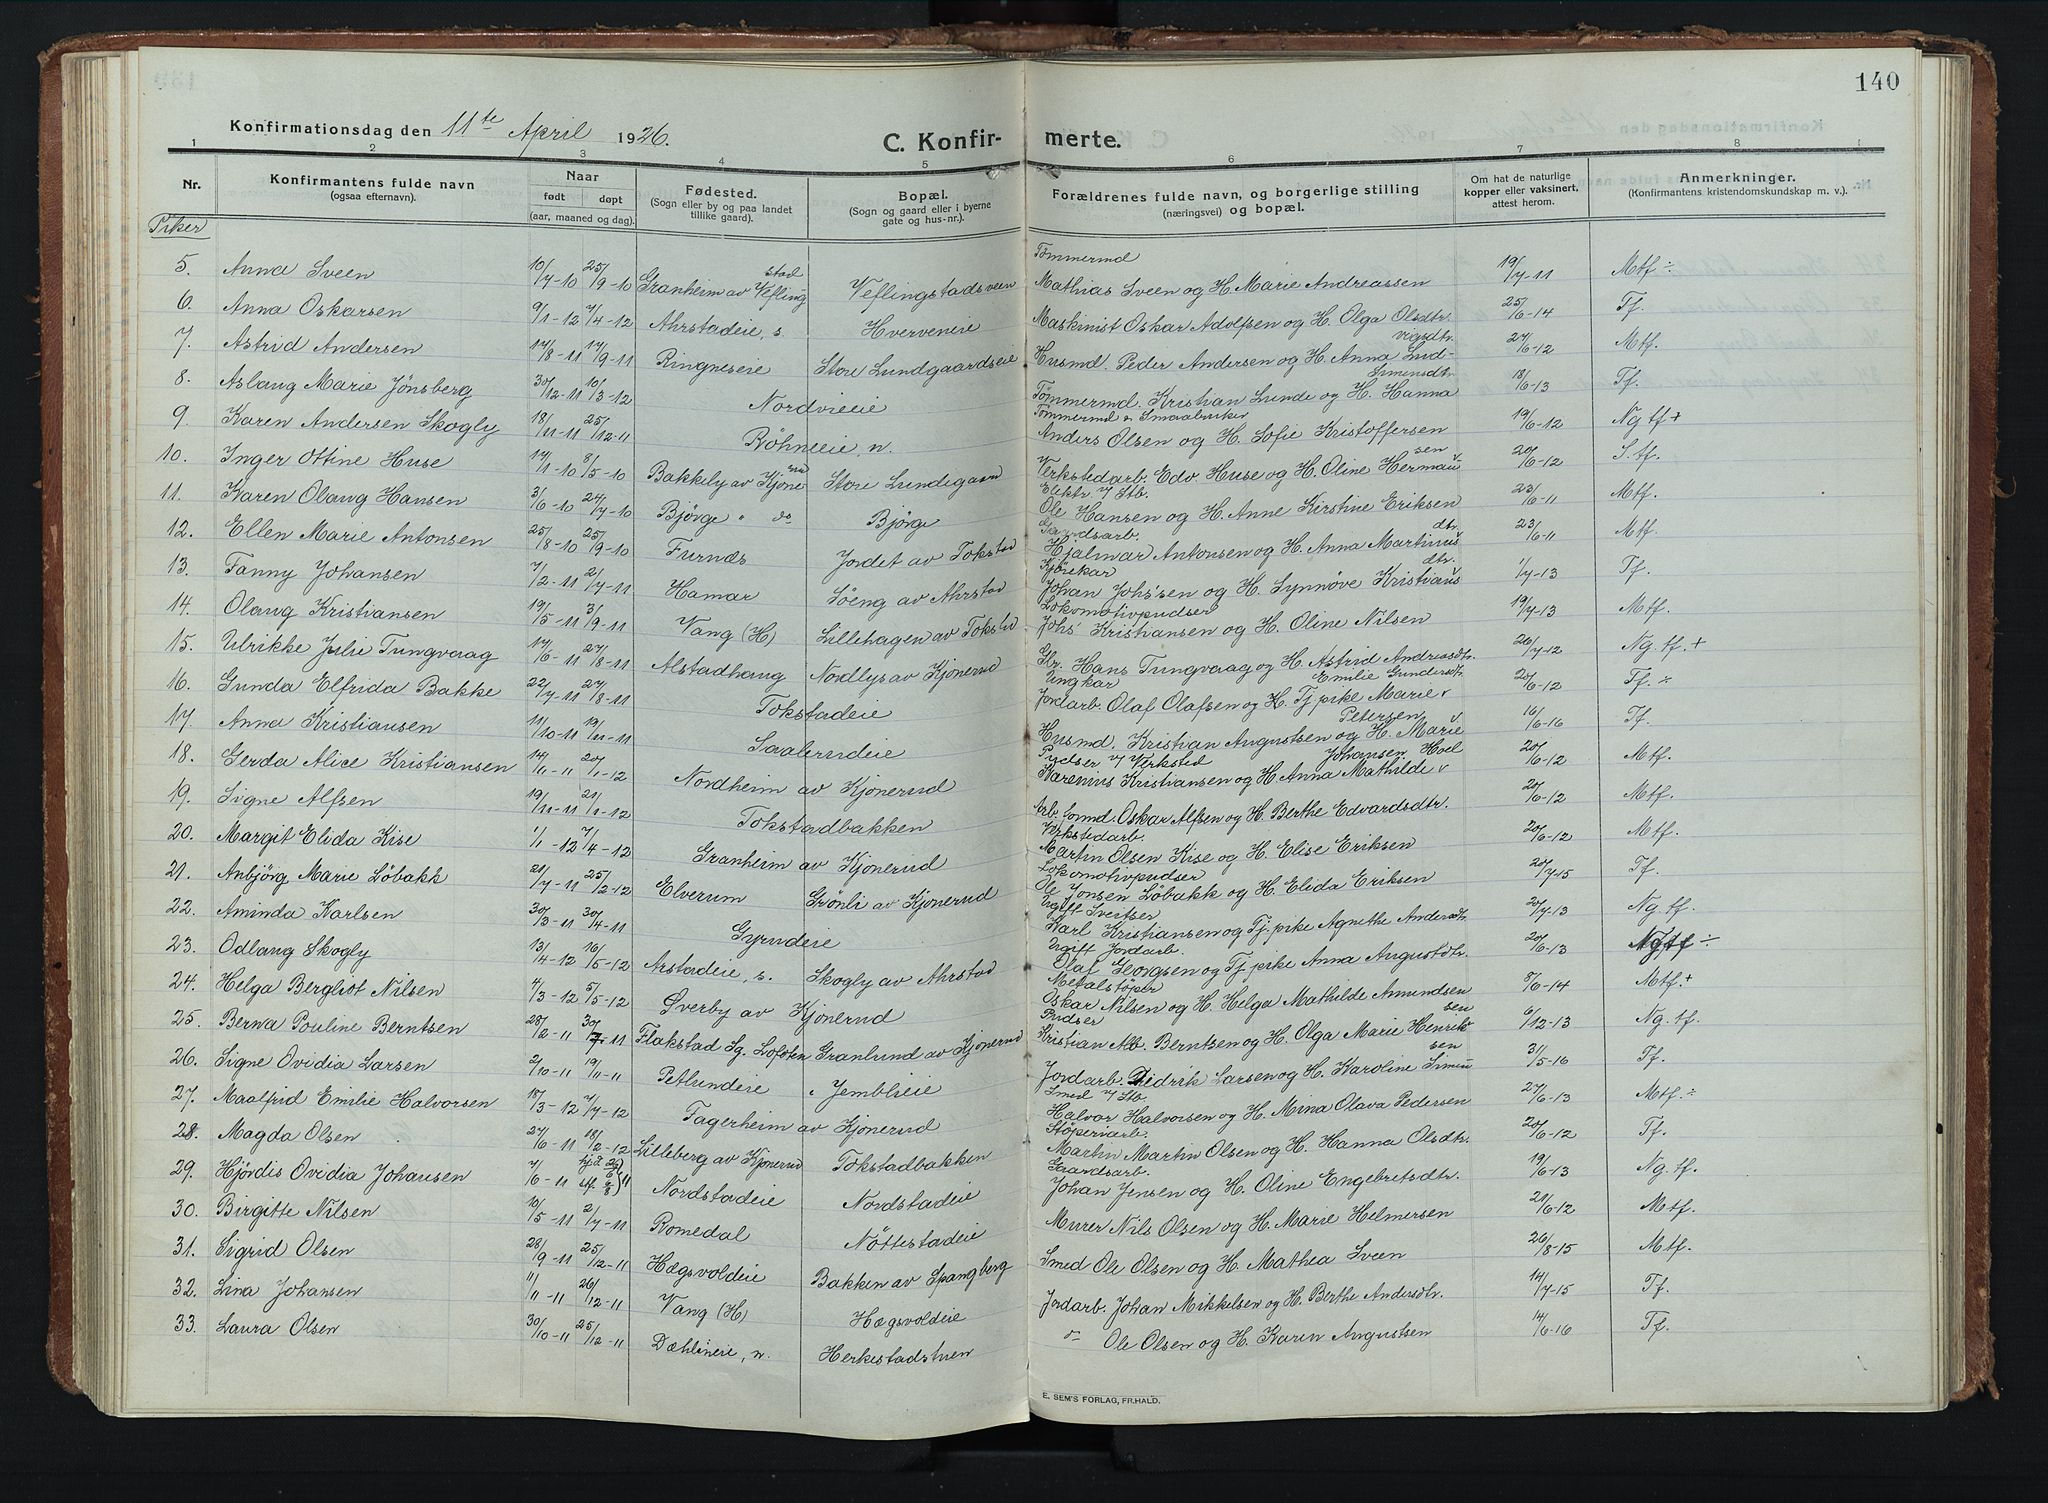 140
Konfirmationsdag den 11te April 1926.
C. Konfirmerte.
1 2 3 4 5 6 7 8
Nr.
Konfirmantens fulde navn (ogsaa efternavn).
Naar født døpt (aar, maaned og dag).
Fødested. (Sogn eller by og paa landet tillike gaard).
Bopæl. (Sogn og gaard eller i byerne gate og hus-nr.).
Forældrenes fulde navn, og borgerlige stilling (næringsvei) og bopæl.
Om hat de naturlige kopper eller vaksinert, attest herom.
Anmerkninger. (Konfirmantens kristendomskundskap m. v.).
Piker
5. Anna Sveen 10/7-10 25/9-10 Granheim av Veflingstad Veflingstadsveen Tømmermd Mathias Sveen og H. Marie Andreassen 19/7-11 Mtf ÷
6. Anna Oskarsen 9/1-12 7/4-12 Ahrstadeie, s. Hverveneie Maskinist Oskar Adolfsen og H. Olga Olsdtr. 25/6-14 Tf.
7. Astrid Andersen 17/8-11 17/9-11 Ringneseie Store Lundgaardseie Husmd. Peder Andersen og H. Anna Ludvigsdtr. 27/6-12 Mtf.
8. Aslaug Marie Jønsberg 30/12-11 10/3-12 Nordvieie Tømmermd. Kristian Lunde og H. Hanna Simensdtr. 18/6-13 Tf.
9. Karen Andersen Skogly 18/11-11 25/12-11 Røhneeie, n. Tømmermd & Smaabruker Anders Olsen og H. Sofie Kristoffersen 19/6-12 Ng tf +
10. Inger Ottine Huse 17/1-10 8/5-10 Bakkely av Kjonerud Store Lundgaard Verkstedarb. Edv. Huse og H. Oline Hermansen 20/6-12 S. tf.
11. Karen Olaug Hansen 3/6-10 24/7-10 Bjørge " do Bjørge Elektr. v/ Stb. Ole Hansen og H. Anne Kirstine Eriksen 23/6-11 Mtf.
12. Ellen Marie Antonsen 25/8-10 25/9-10 Furnes Jordet av Tokstad Gaardsarb. Hjalmar Antonsen og H. Anna Martinusdtr. 23/6-11 Mtf.
13. Fanny Johansen 7/2-11 2/7-11 Hamar Søeng av Ahrstad Kjørekar Johan Johs'sen og H. Synnøve Kristiansdtr. 1/7-13 Tf.
14. Olaug Kristiansen 19/5-11 3/9-11 Vang (H) Lillehagen av Tokstad Lokomotivpudser Johs' Kristiansen og H. Oline Nilsen 19/7-13 Mtf.
15. Ulrikke Julie Tungvaag 17/6-11 27/8-11 Alstadhaug Nordlys av Kjonerud Gbr. Hans Tungvaag og H. Astrid Andreasdtr. 26/7-12 Ng. tf. +
16. Gunda Elfrida Bakke 22/7-11 27/8-11 Tokstadeie Ungkar Jordarb. Olaf Olafsen og Tj pike Marie Emilie Gundersdtr. 27/6-12 Tf. ÷
17. Anna Kristiansen 11/10-11 19/11-11 Saalerudeie Husmd. Kristian Augustsen og H. Marie Petersen 16/6-16 Tf.
18. Gerda Alice Kristiansen 14/11-11 20/1-12 Nordheim av Kjonerud Pudser v/ Verksted Karenius Kristiansen og H Anna Mathilde Johansen Hoel 20/6-12 Mtf.
19. Signe Alfsen 19/11-11 21/1-12 Tokstadbakken Arb. formd. Oskar Alfsen og H. Berthe Edvardsdtr. 27/6-12 Mtf.
20. Margit Elida Kise 1/1-12 7/4-12 Granheim av Kjonerud Verkstedarb. Martin Olsen Kise og H. Elise Eriksen 20/6-12 Mtf.
21. Anbjørg Marie Løbakk 21/7-11 25/2-12 Elverum Grønli av Kjonerud Lokomotivpudser Ole Jonsen Løbakk og H. Elida Eriksen 20/7-15 Tf.
22. Aminda Karlsen 30/3-11 30/4-11 Gyrudeie Ugift Sveitser Karl Kristiansen og Tj. pike Agnethe Andersdtr 20/7-13 Ng. tf.
23. Odlaug Skogly 13/4-12 16/5-12 Arstadeie, s. Skogly av Ahrstad Ugift Jordarb. Olaf Georgsen og Tj pike Anna Augustdtr. 20/6-13 Ngtf ÷
24. Helga Bergliot Nilsen 4/3-12 5/5-12 Sverby av Kjonerud Metalstøper Oskar Nilsen og H. Helga Mathilde Amundsen 8/6-14 Mtf. +
25. Berna Pouline Berntsen 28/2-11 30/7-11 Flakstad Sg. Lofoten Granlund av Kjonerud Pudser Kristian Alb. Berntsen og H. Olga Marie Henriksen 6/12-13 Ng. tf.
26. Signe Ovidia Larsen 2/10-11 19/11-11 Petlundeie Jemblieie Jordarb. Didrik Larsen og H. Karoline Simensen 31/5-16 Tf.
27. Maalfrid Emilie Halvorsen 18/3-12 7/7-12 Fagerheim av Kjonerud Smed v/ Stb. Halvor Halvorsen og H. Mina Olava Pedersen 27/6-13 Mtf. ÷
28. Magda Olsen 27/6-11 18/2-12 Lilleberg av Kjonerud Tokstadbakken Støperiarb. Martin Martin Olsen og H. Hanna Olsdtr. 20/6-12 Tf.
29. Hjørdis Ovidia Johansen 7/6-11 Nordstadeie Nordstadeie Gaardsarb. Johan Jensen og H. Oline Engebretsdtr. 19/6-13 Ng. tf.
30. Birgitte Nilsen 10/5-11 2/7-11 Romedal Nøttestadeie Murer Nils Olsen og H. Marie Helmersen 21/6-12 Mtf.
31. Sigrid Olsen 28/9-11 25/12-11 Hægsvoldeie Bakken av Spangberg Smed Ole Olsen og H. Mathea Sveen 26/8-15 Mtf.
32. Lina Johansen 11/11-11 26/12-11 Vang (H) Hægsvoldeie Jordarb. Johan Mikkelsen og H. Berthe Andersdtr. 14/7-15 Tf.
33. Laura Olsen 30/10-11 25/12-11 Dæhlineie, n. Herkestadstuen do Ole Olsen og H. Karen Augustsen 14/6-16 Tf.
E. SEM'S FORLAG, FR.HALD.